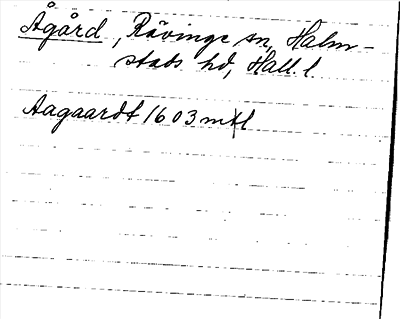 Ågård, Rävinge sn, Halm-
stads hd, Hall. l.
Aagaardt 1603 mtl